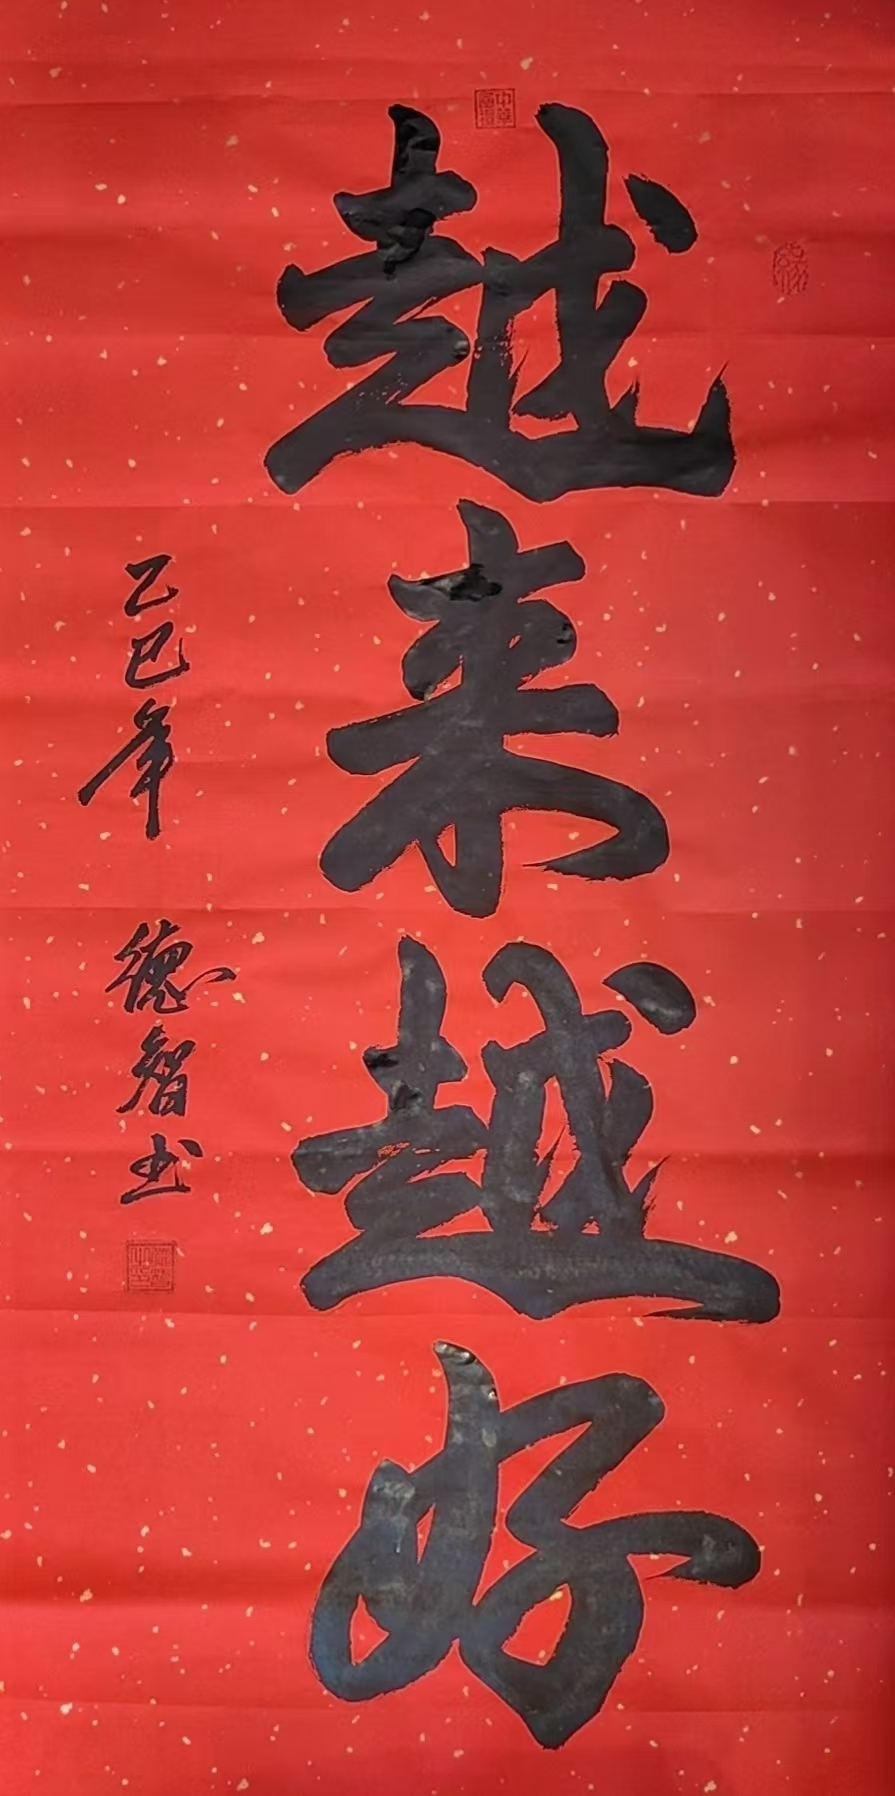 越来越好
乙巳年 德智书